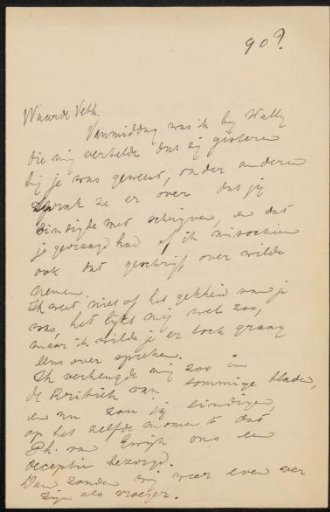 90?
Waarde Veth.
Vanmiddag was ik bij Wally
die mij vertelde dat zij gisteren
bij je was geweest, onder anderen
sprak ze er over dat jij
eindigde met schrijven, en dat
je gevraagd had of ik misschien
ook dat geschrijf over wilde
nemen.
Ik weet niet of het gekheid van je
was, het lijkt mij wel zoo,
maar ik wilde je er toch graag
eens over spreken.
Ik verheugde mij zoo in
de kritiek van sommige bladen,
en nu zou jij eindigen,
op het zelfde moment dat
Ph. van ons een
deceptie bezorgd.
Dan zouden wij weer even ver
zijn als vroeger.